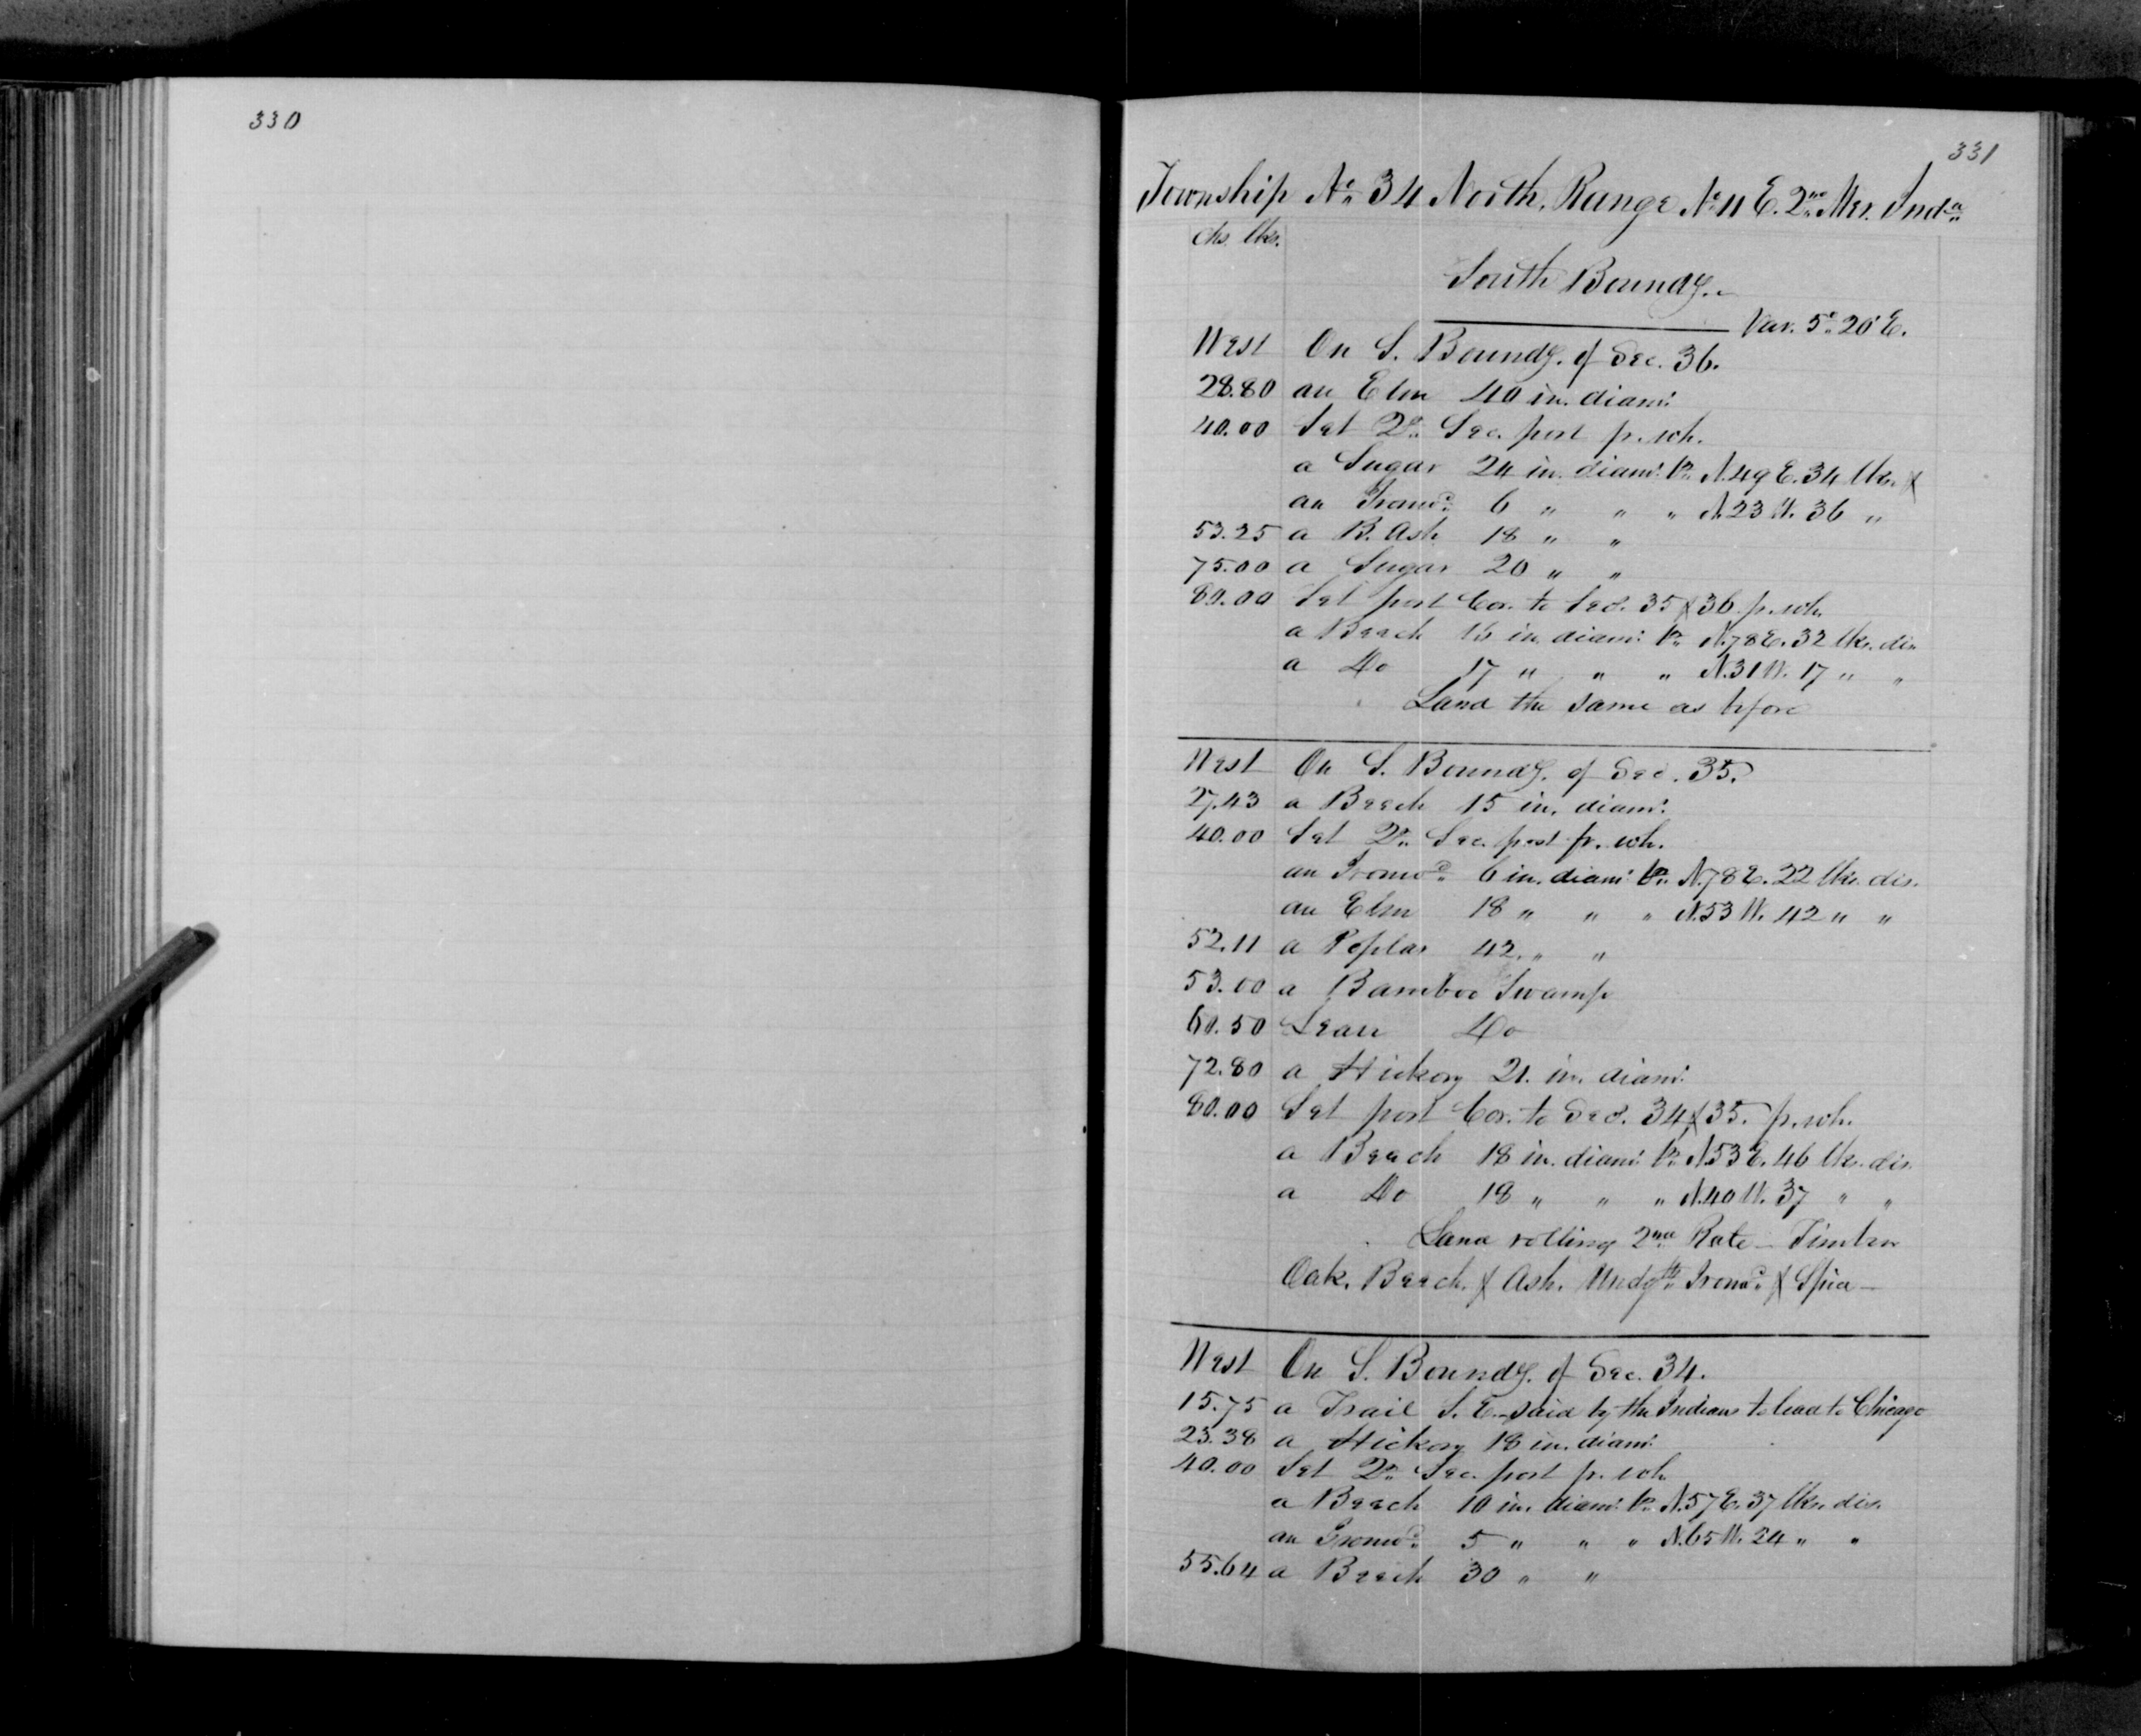 330
331
Township No. 34 North, Range No. 11 E. 2nd Mer. Inda
Chs. lks.
South Boundy.
Var. 5° 20' E.
West On S. Boundy. of Sec. 36.
28.80 an Elm 40 in. diamr.
40.00 Set Qr. Sec. post fr. wh.
a Sugar 24 in. diamr. br. N. 49 E. 34 lks. &
an Ironwd. 6 " " " N. 23 W. 36 "
53.25 a B. Ash 18 " "
75.00 a Sugar 20 " "
80.00 Set post Cor. to Secs. 35 & 36 fr. wh.
a Beech 16 in. diamr. br. N. 78 E. 32 lks. dis.
a Do 17 " " " N. 31 W. 17 " "
Land the same as before
West On S. Boundy. of Sec. 35.
27.43 a Beech 15 in. diamr.
40.00 Set Qr. Sec. post fr. wh.
an Ironwd. 6 in. diamr. br. N. 78 E. 22 lks. dis.
an Elm 18 " " " N. 53 W. 42 " "
52.11 a Poplar 42 " "
53.00 a Bamboo Swamp
60.50 Leave Do
72.80 a Hickory 21 in. diamr.
80.00 Set post Cor. to Secs. 34 & 35. fr. wh.
a Beech 18 in. diamr. br. N. 53 E. 46 lks. dis.
a Do 18 " " " N. 40 W. 37 " "
Land rolling 2nd Rate – Timber
Oak, Beech, & Ash. Undgth. Ironwd. & Spice –
West On S. Boundy. of Sec. 34.
15.75 a Trail S. E. – said by the Indians to lead to Chicago
23.38 a Hickory 18 in. diamr.
40.00 Set Qr. Sec. post fr. wh.
a Beech 10 in. diamr. br. N. 57 E. 37 lks. dis.
an Ironwd. 5 " " " N. 65 W. 24 " "
55.64 a Beech 30 " "